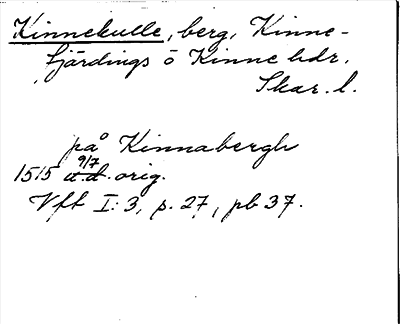 Kinnekulle, berg, Kinne-
fjärdings o Kinne hdr.
Skar. l.
på Kinnabergh
9/7
1515 u.d. orig.
Vft I:3, p. 27, pb 37.